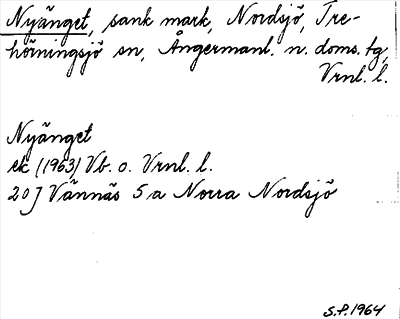 Nyänget, sank mark, Nordsjö, Tre-
hörningsjö sn, Ångermanl. n. doms. tg,
Vrnl. l.
Nyänget
ek (1963) Vb. o. Vrnl. l.
20 J Vännäs 5 a Norra Nordsjö
S.P. 1964